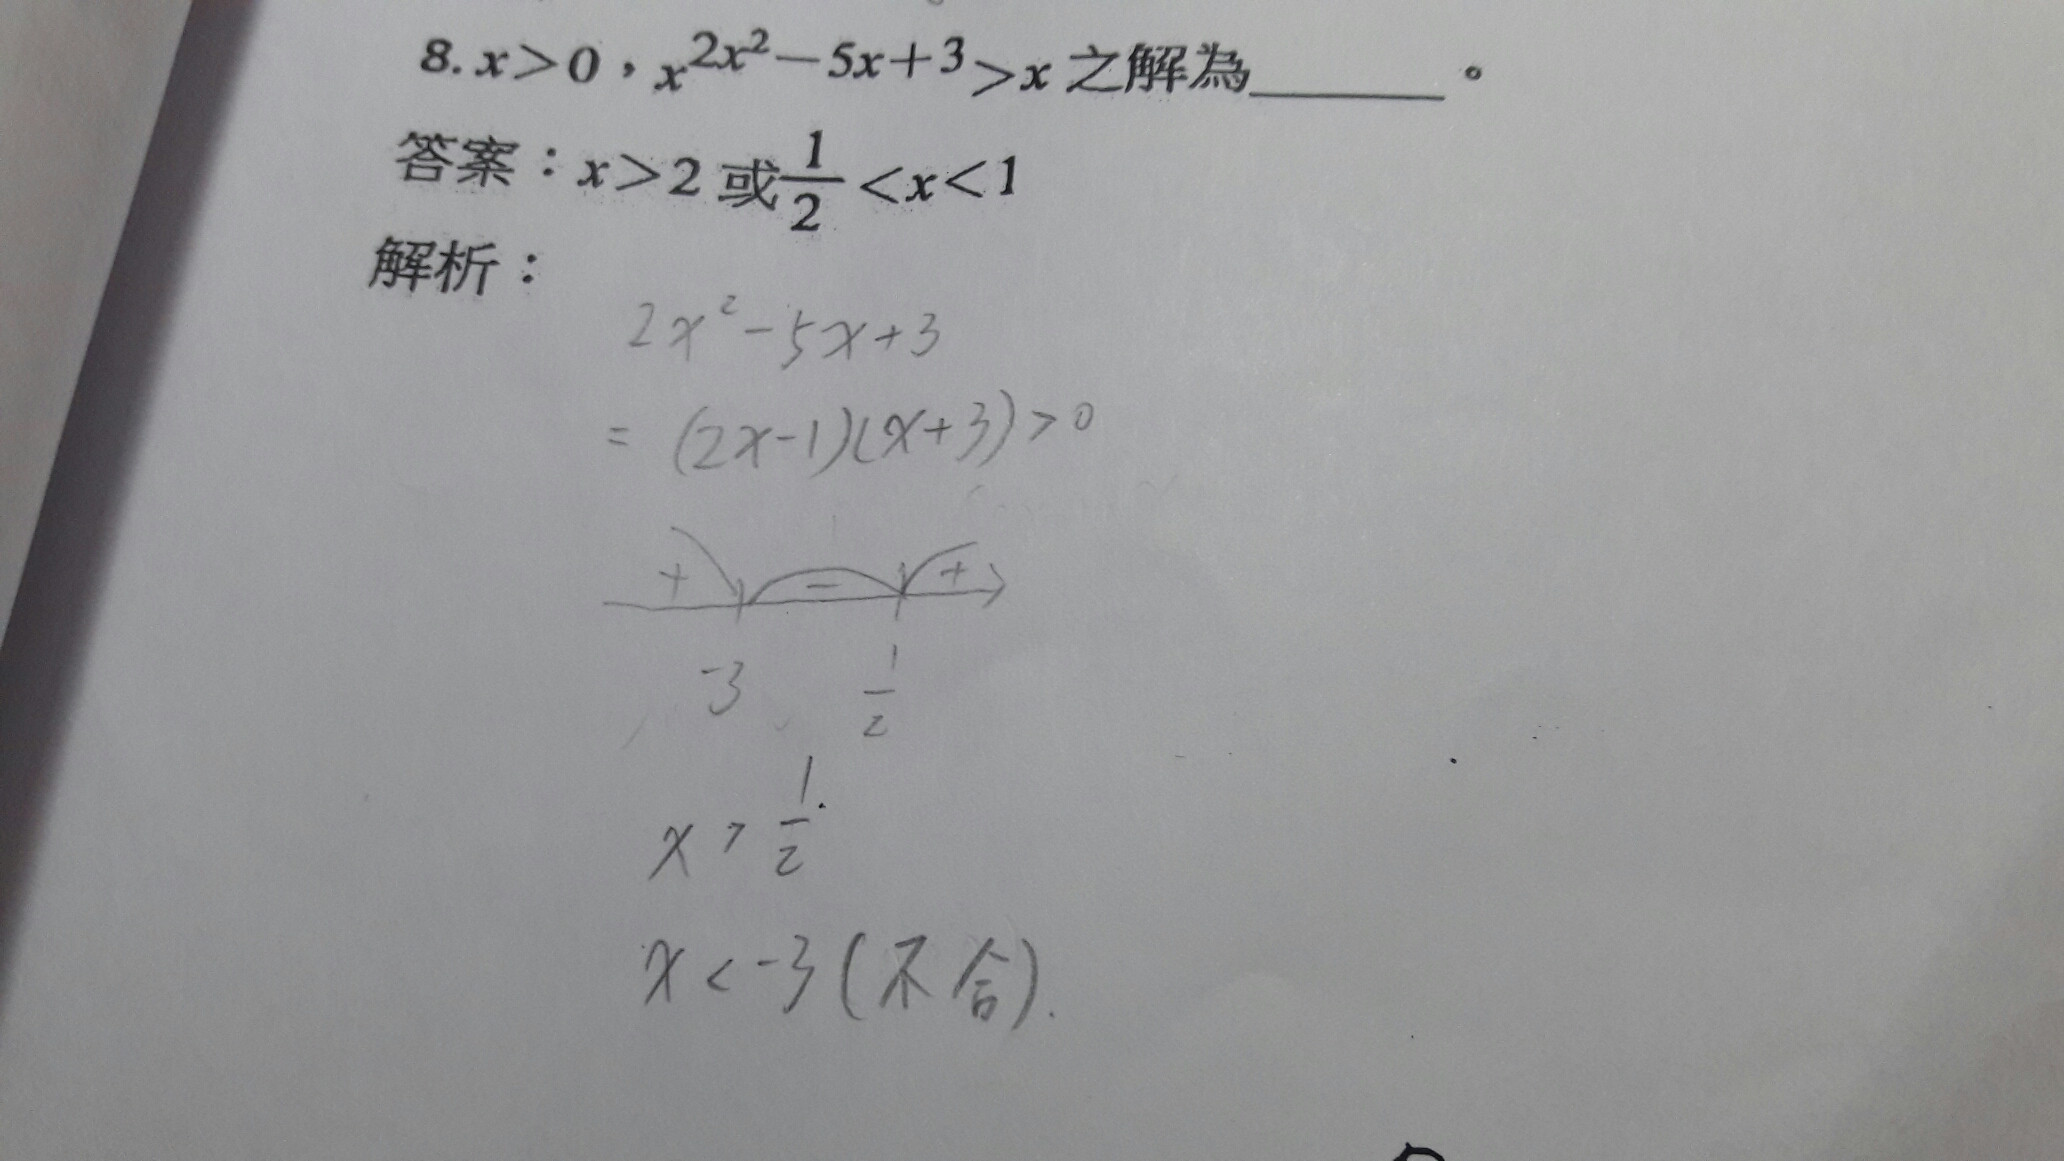 8. x>0，x^{2x²−5x+3}>x 之解為______。
答案：x>2 或 1/2 <x<1
解析：
2x²-5x+3
= (2x-1)(x+3)>0
+ − +
-3 1/2
x > 1/2
x < -3 (不合).